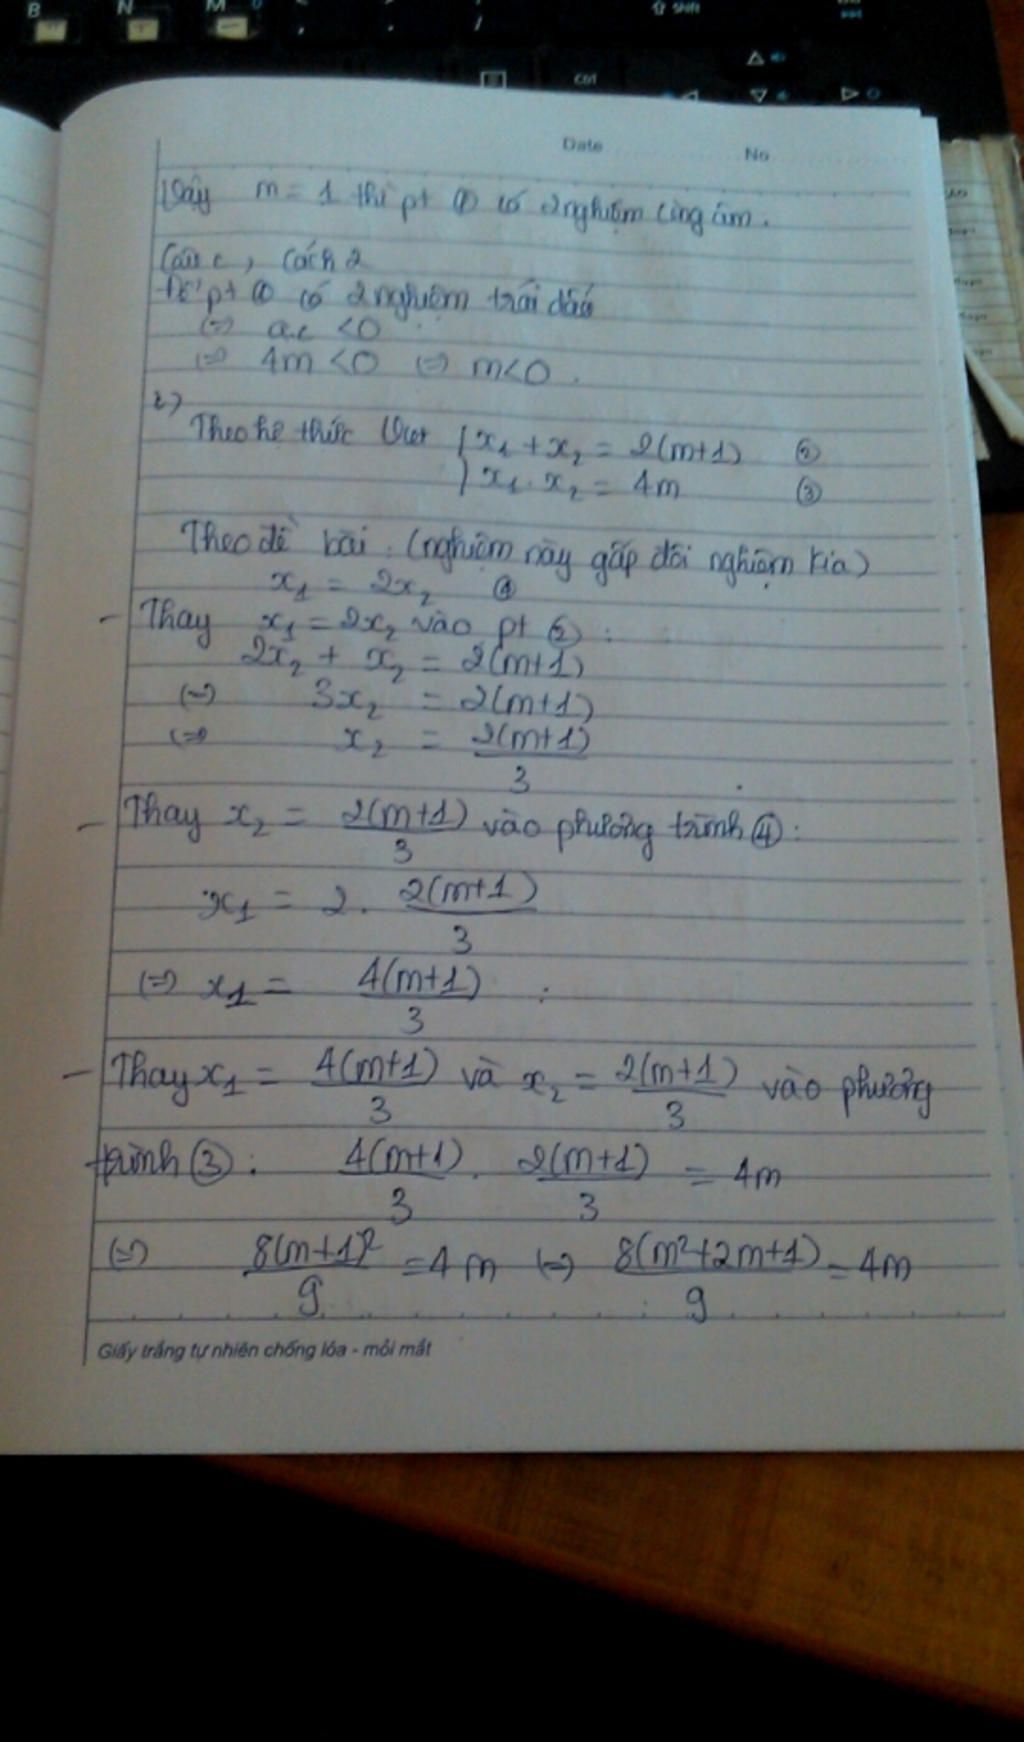 B N M Shift
Ctrl
Date No
Vậy m = 1 thì pt ① có 2 nghiệm cùng âm.
Câu c, Cách 2
Để pt ① có 2 nghiệm trái dấu
(=) a.c < 0
(=) 4m < 0 (=) m < 0 .
Theo hệ thức Viet { x₁ + x₂ = 2(m+1) ②
x₁ . x₂ = 4m ③
Theo đề bài : (nghiệm này gấp đôi nghiệm kia)
x₁ = 2x₂ ④
- Thay x₁ = 2x₂ vào pt ② :
2x₂ + x₂ = 2(m+1)
(=) 3x₂ = 2(m+1)
(=) x₂ = 2(m+1)/3
- Thay x₂ = 2(m+1)/3 vào phương trình ④ :
x₁ = 2 . 2(m+1)/3
(=) x₁ = 4(m+1)/3 :
- Thay x₁ = 4(m+1)/3 và x₂ = 2(m+1)/3 vào phương
trình ③ : 4(m+1)/3 . 2(m+1)/3 = 4m
(=) 8(m+1)²/9 = 4m (=) 8(m²+2m+1)/9 = 4m
Giấy trắng tự nhiên chống lóa - mỏi mắt